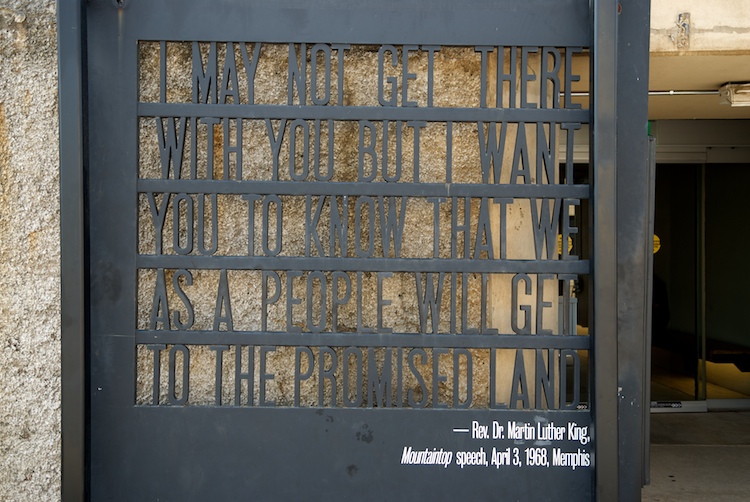 I MAY NOT GET THERE
WITH YOU BUT I WANT
YOU TO KNOW THAT WE
AS A PEOPLE WILL GET
TO THE PROMISED LAND
— Rev. Dr. Martin Luther King,
Mountaintop speech, April 3, 1968, Memphis